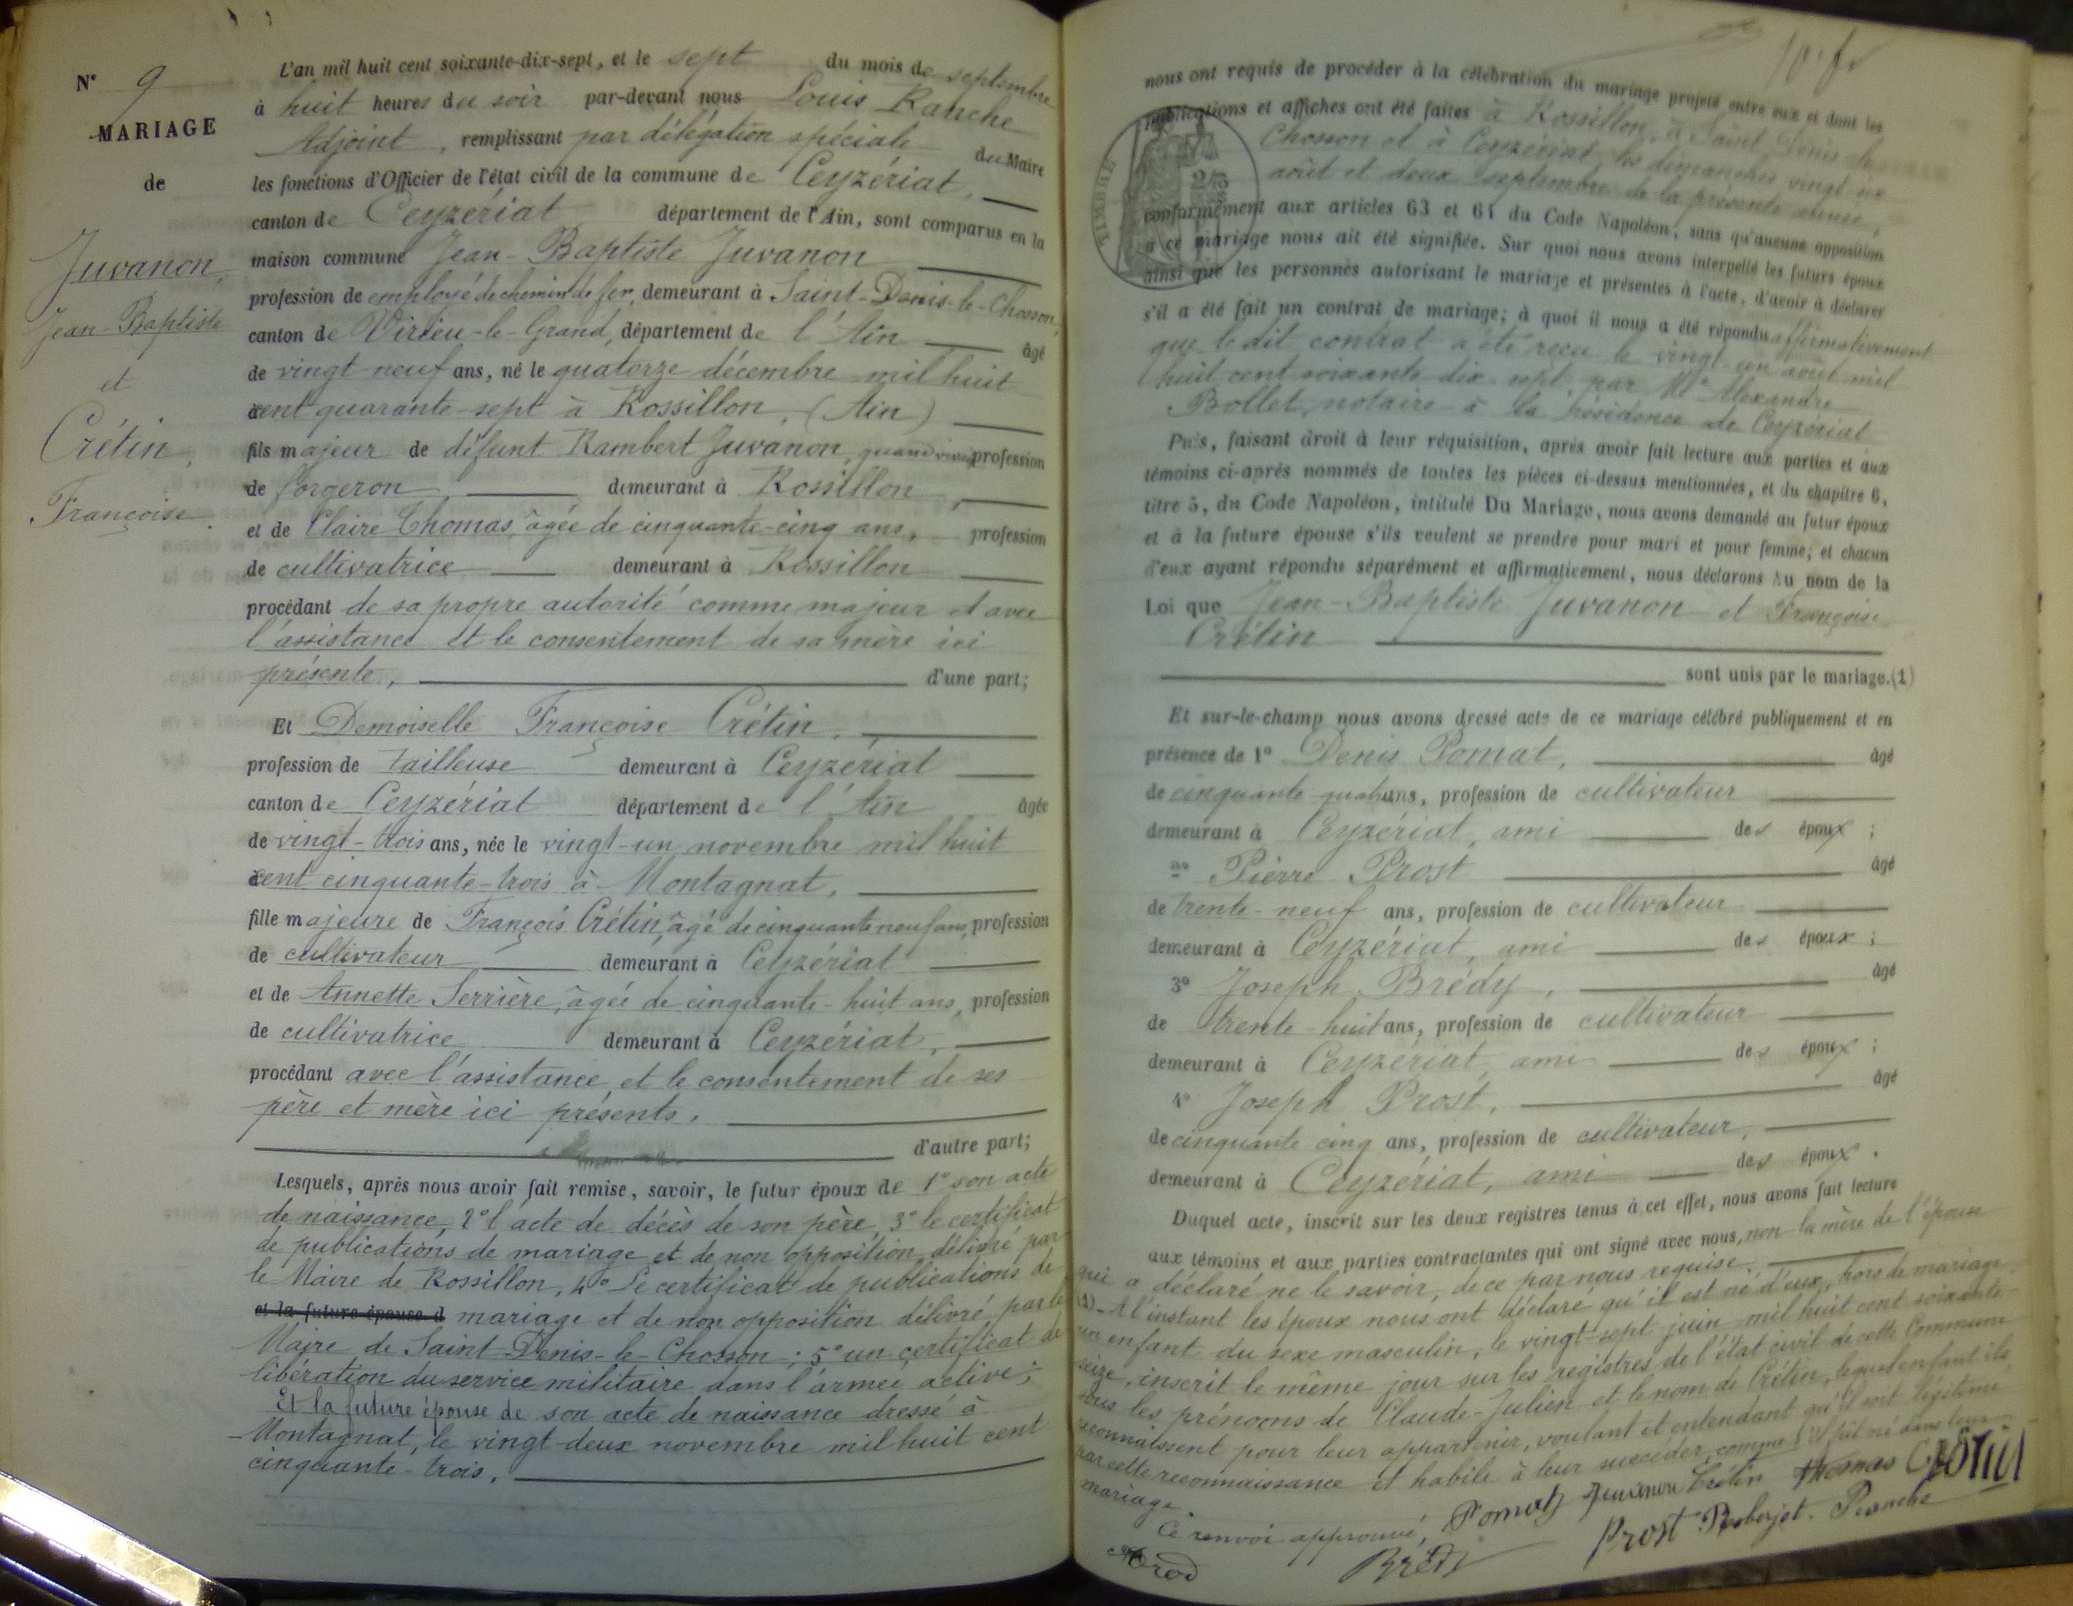 N° 9
MARIAGE
de
Juvanon,
Jean-Baptiste
et
Crétin,
Françoise.
L'an mil huit cent soixante-dix-sept, et le sept du mois de septembre
à huit heures du soir par-devant nous Louis Ranche
Adjoint, remplissant par délégation spéciale du Maire
les fonctions d'Officier de l'état civil de la commune de Ceyzériat,
canton de Ceyzériat département de l'Ain, sont comparus en la
maison commune Jean-Baptiste Juvanon
profession de employé de chemin de fer, demeurant à Saint-Denis-le-Chosson,
canton de Virieu-le-Grand, département de l'Ain âgé
de vingt neuf ans, né le quatorze décembre mil huit
cent quarante-sept à Rossillon, (Ain)
fils majeur de défunt Rambert Juvanon, quand vivait profession
de forgeron, demeurant à Rossillon,
et de Claire Thomas, âgée de cinquante-cinq ans, profession
de cultivatrice demeurant à Rossillon
procédant de sa propre autorité comme majeur et avec
l'assistance et le consentement de sa mère ici
présente, d'une part;
Et Demoiselle Françoise Crétin,
profession de tailleuse demeurant à Ceyzériat
canton de Ceyzériat département de l'Ain âgée
de vingt-trois ans, née le vingt-un novembre mil huit
cent cinquante-trois à Montagnat,
fille majeure de François Crétin, âgé de cinquante neuf ans, profession
de cultivateur demeurant à Ceyzériat
et de Annette Serrière, âgée de cinquante-huit ans, profession
de cultivatrice demeurant à Ceyzériat,
procédant avec l'assistance et le consentement de ses
père et mère ici présents.
d'autre part;
Lesquels, après nous avoir fait remise, savoir, le futur époux de 1° son acte
de naissance, 2° l'acte de décès de son père, 3° le certificat
de publications de mariage et de non opposition, délivré par
le Maire de Rossillon, 4° Le certificat de publications de
et la future épouse d mariage et de non opposition délivré par le
Maire de Saint-Denis-le-Chosson; 5° un certificat de
libération du service militaire dans l'armée active;
Et la future épouse de son acte de naissance dressé à
Montagnat, le vingt-deux novembre mil huit cent
cinquante-trois.
nous ont requis de procéder à la célébration du mariage projeté entre eux et dont les
publications et affiches ont été faites à Rossillon, à Saint Denis le
Chosson et à Ceyzériat les dimanches vingt six
août et deux septembre de la présente année,
TIMBRE
conformément aux articles 63 et 64 du Code Napoléon, sans qu'aucune opposition
à ce mariage nous ait été signifiée. Sur quoi nous avons interpellé les futurs époux
ainsi que les personnes autorisant le mariage et présentes à l'acte, d'avoir à déclarer
s'il a été fait un contrat de mariage; à quoi il nous a été répondu affirmativement
que le dit contrat a été reçu le vingt-un août mil
huit cent soixante dix sept par Me Alexandre
Bollet, notaire à la résidence de Ceyzériat
Puis, faisant droit à leur réquisition, après avoir fait lecture aux parties et aux
témoins ci-après nommés de toutes les pièces ci-dessus mentionnées, et du chapitre 6,
titre 5, du Code Napoléon, intitulé Du Mariage, nous avons demandé au futur époux
et à la future épouse s'ils veulent se prendre pour mari et pour femme; et chacun
d'eux ayant répondu séparément et affirmativement, nous déclarons Au nom de la
Loi que Jean-Baptiste Juvanon et Françoise
Crétin
sont unis par le mariage.(1)
Et sur-le-champ nous avons dressé acte de ce mariage célébré publiquement et en
présence de 1° Denis Pomat, âgé
de cinquante quatre ans, profession de cultivateur
demeurant à Ceyzériat, ami des époux;
2° Pierre Prost âgé
de trente-neuf ans, profession de cultivateur
demeurant à Ceyzériat, ami des époux;
3° Joseph Brédy, âgé
de trente-huit ans, profession de cultivateur
demeurant à Ceyzériat, ami des époux;
4° Joseph Prost, âgé
de cinquante cinq ans, profession de cultivateur,
demeurant à Ceyzériat, ami des époux.
Duquel acte, inscrit sur les deux registres tenus à cet effet, nous avons fait lecture
aux témoins et aux parties contractantes qui ont signé avec nous, non la mère de l'épouse
qui a déclaré ne le savoir, de ce par nous requise.
(1)-A l'instant les époux nous ont déclaré qu'il est né d'eux, hors de mariage
un enfant du sexe masculin, le vingt-sept juin mil huit cent soixante-
seize, inscrit le même jour sur les registres de l'état civil de cette Commune
sous les prénoms de Claude-Julien et le nom de Crétin, lequel enfant ils
reconnaissent pour leur appartenir, voulant et entendant qu'il soit légitime
par cette reconnaissance et habile à leur succéder comme s'il fût né dans leur
mariage.
Ce renvoi approuvé, Pomat Juvanon Crétin Thomas Crétin
Brédy Prost Ranche